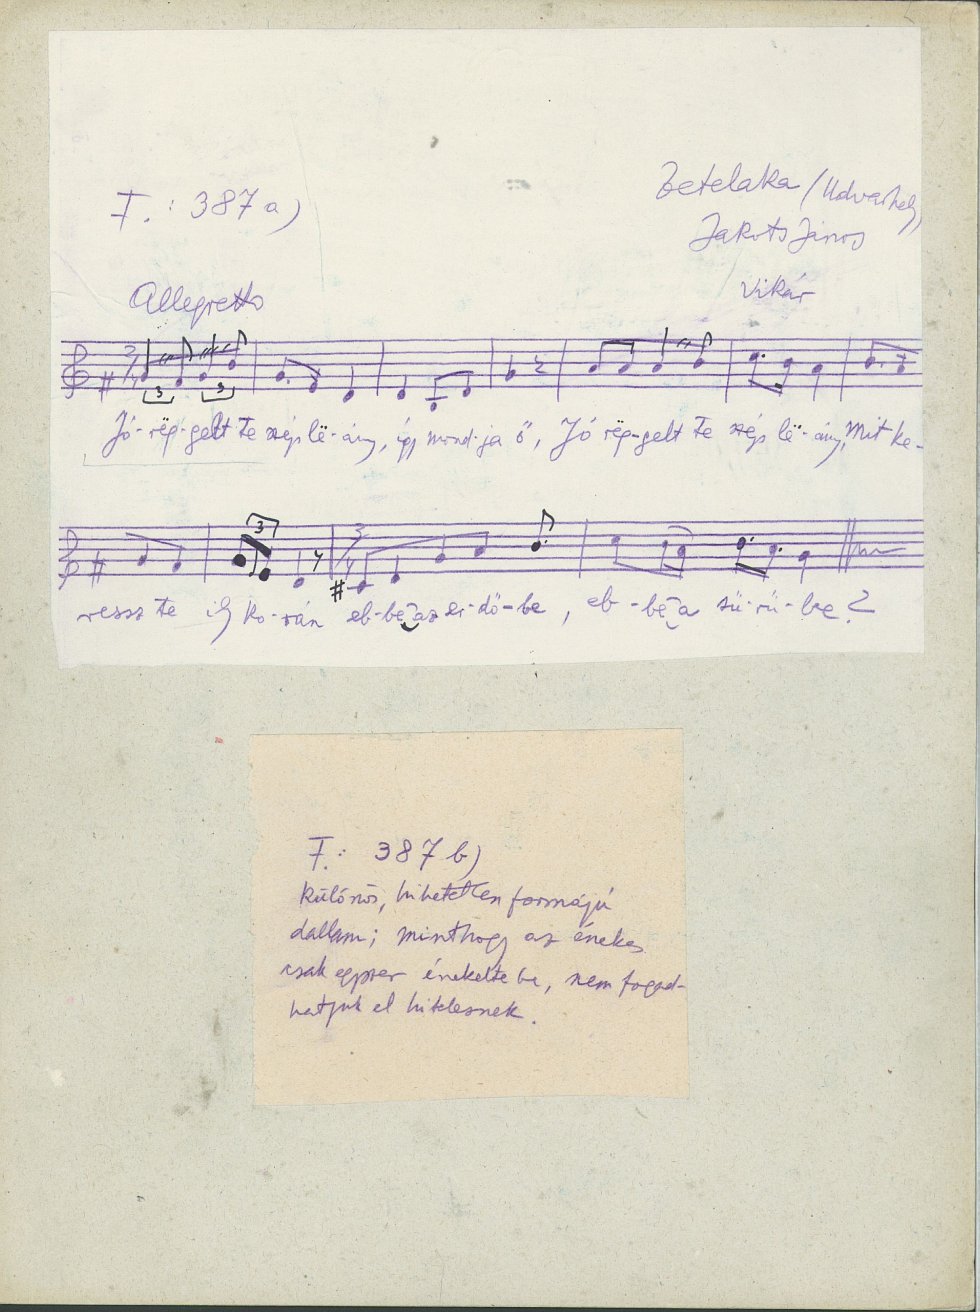 F.: 387 a)
Zetelaka (Udvarhely)
Jakots János
Allegretto
Vikár
2/4
3 3
Jó-rëg-gelt te szép lë-ány, így mond-ja ő, Jó rëg-gelt te szép lë-ány, Mit ke-
3
3/4
ressz te ily ko-rán eb-be az er-dő-be, eb-be a sű-rű-be?
F.: 387 b)
Különös, hihetetlen formájú
dallam; minthogy az énekes
csak egyszer énekelte be, nem fogad-
hatjuk el hitelesnek.